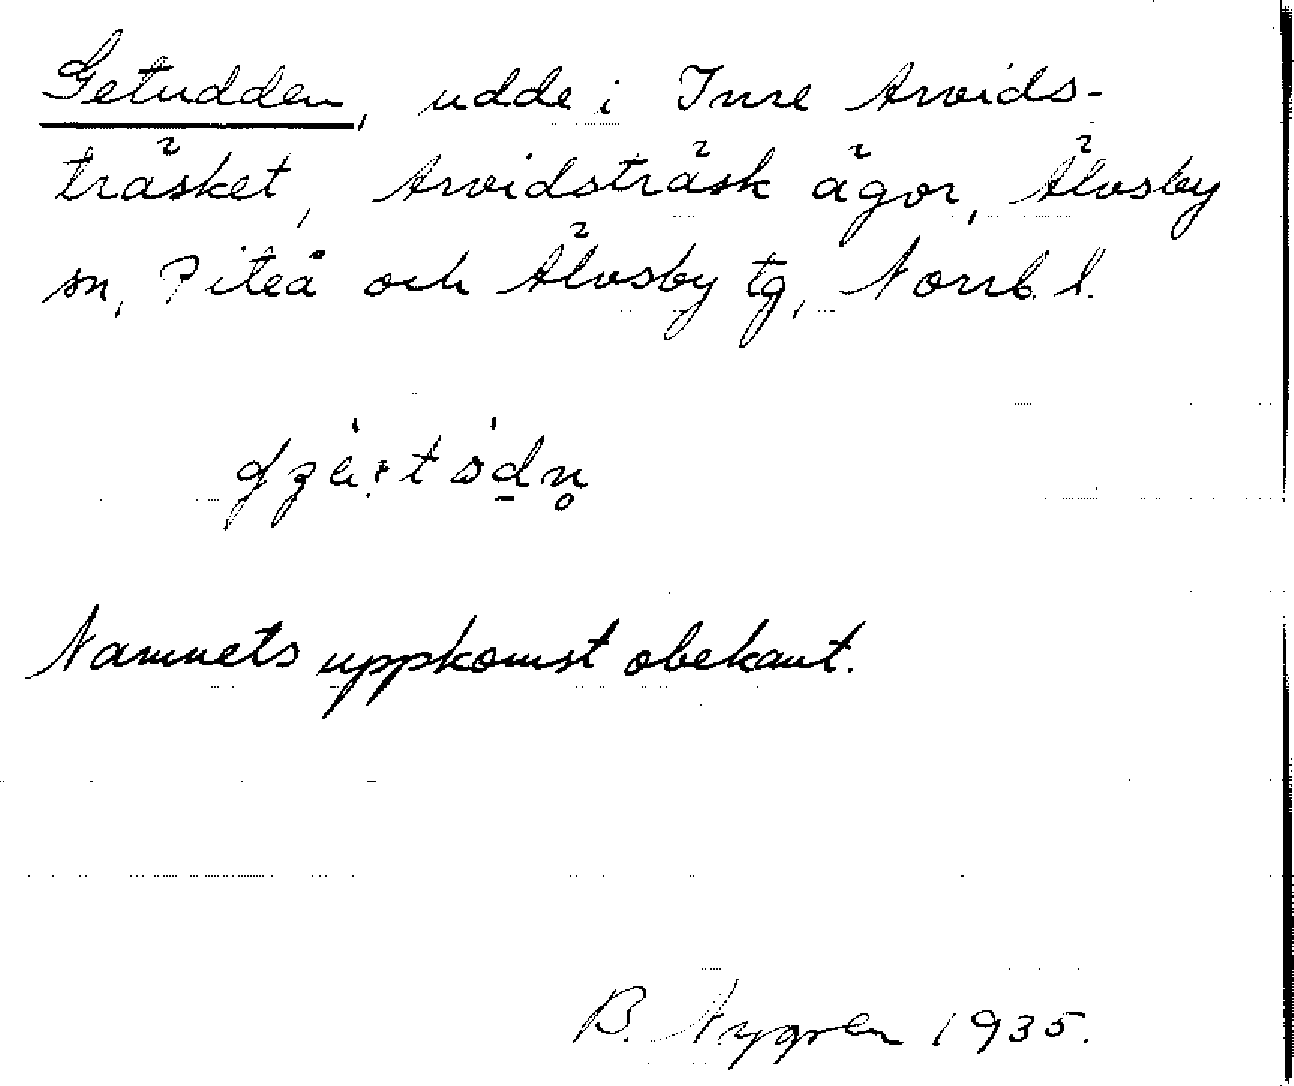 Getudden, udde i Inre Arvids-
träsket, Arvidsträsk ägor, Älvsby
sn, Piteå och Älvsby tg, Norrb. l.
Namnets uppkomst obekant.
B. Nygren 1935.